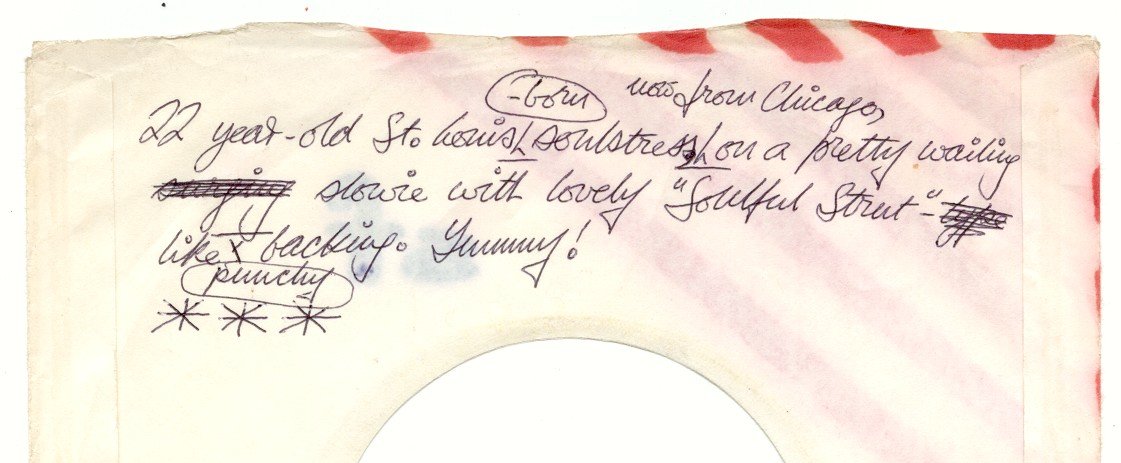 -born now from Chicago,
22 year-old St. Louis soulstress on a pretty wailing
slowie with lovely "Soulful Strut"-
like backing. Yummy!
punchy
***